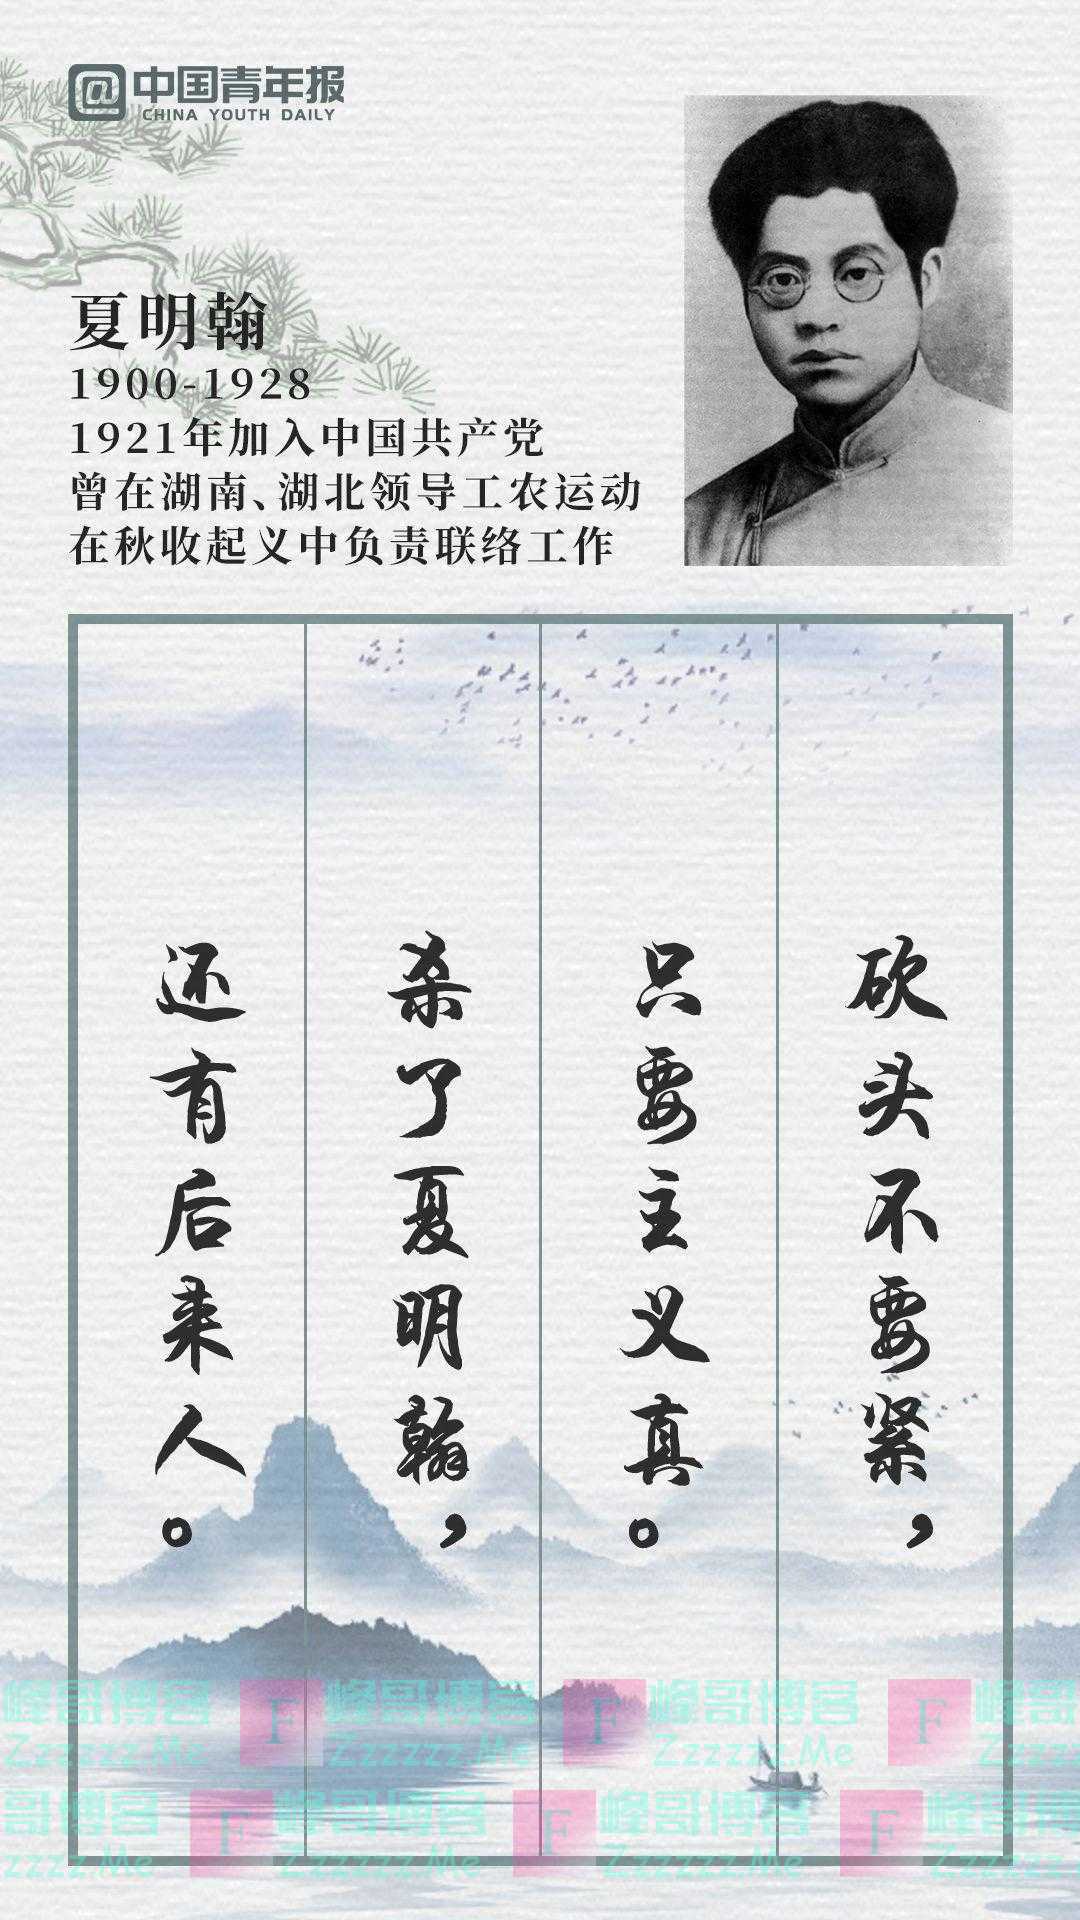 @中国青年报
CHINA YOUTH DAILY
夏明翰
1900-1928
1921年加入中国共产党
曾在湖南、湖北领导工农运动
在秋收起义中负责联络工作
砍头不要紧，
只要主义真。
杀了夏明翰，
还有后来人。
峰哥博客 F 峰哥博客 F 峰哥博客 F 峰哥
Zzzzzz.Me Zzzzzz.Me Zzzzzz.Me Zzzzz
哥博客 F 峰哥博客 F 峰哥博客 F 峰哥博
zzzz.Me Zzzzzz.Me Zzzzzz.Me Zzzzzz